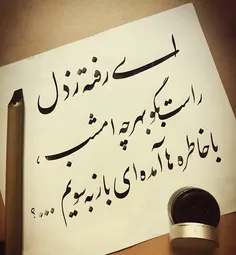 ای رفته ز دل
راست بگو بهر چه امشب،
با خاطره ها آمده ای باز به سویم ....؟